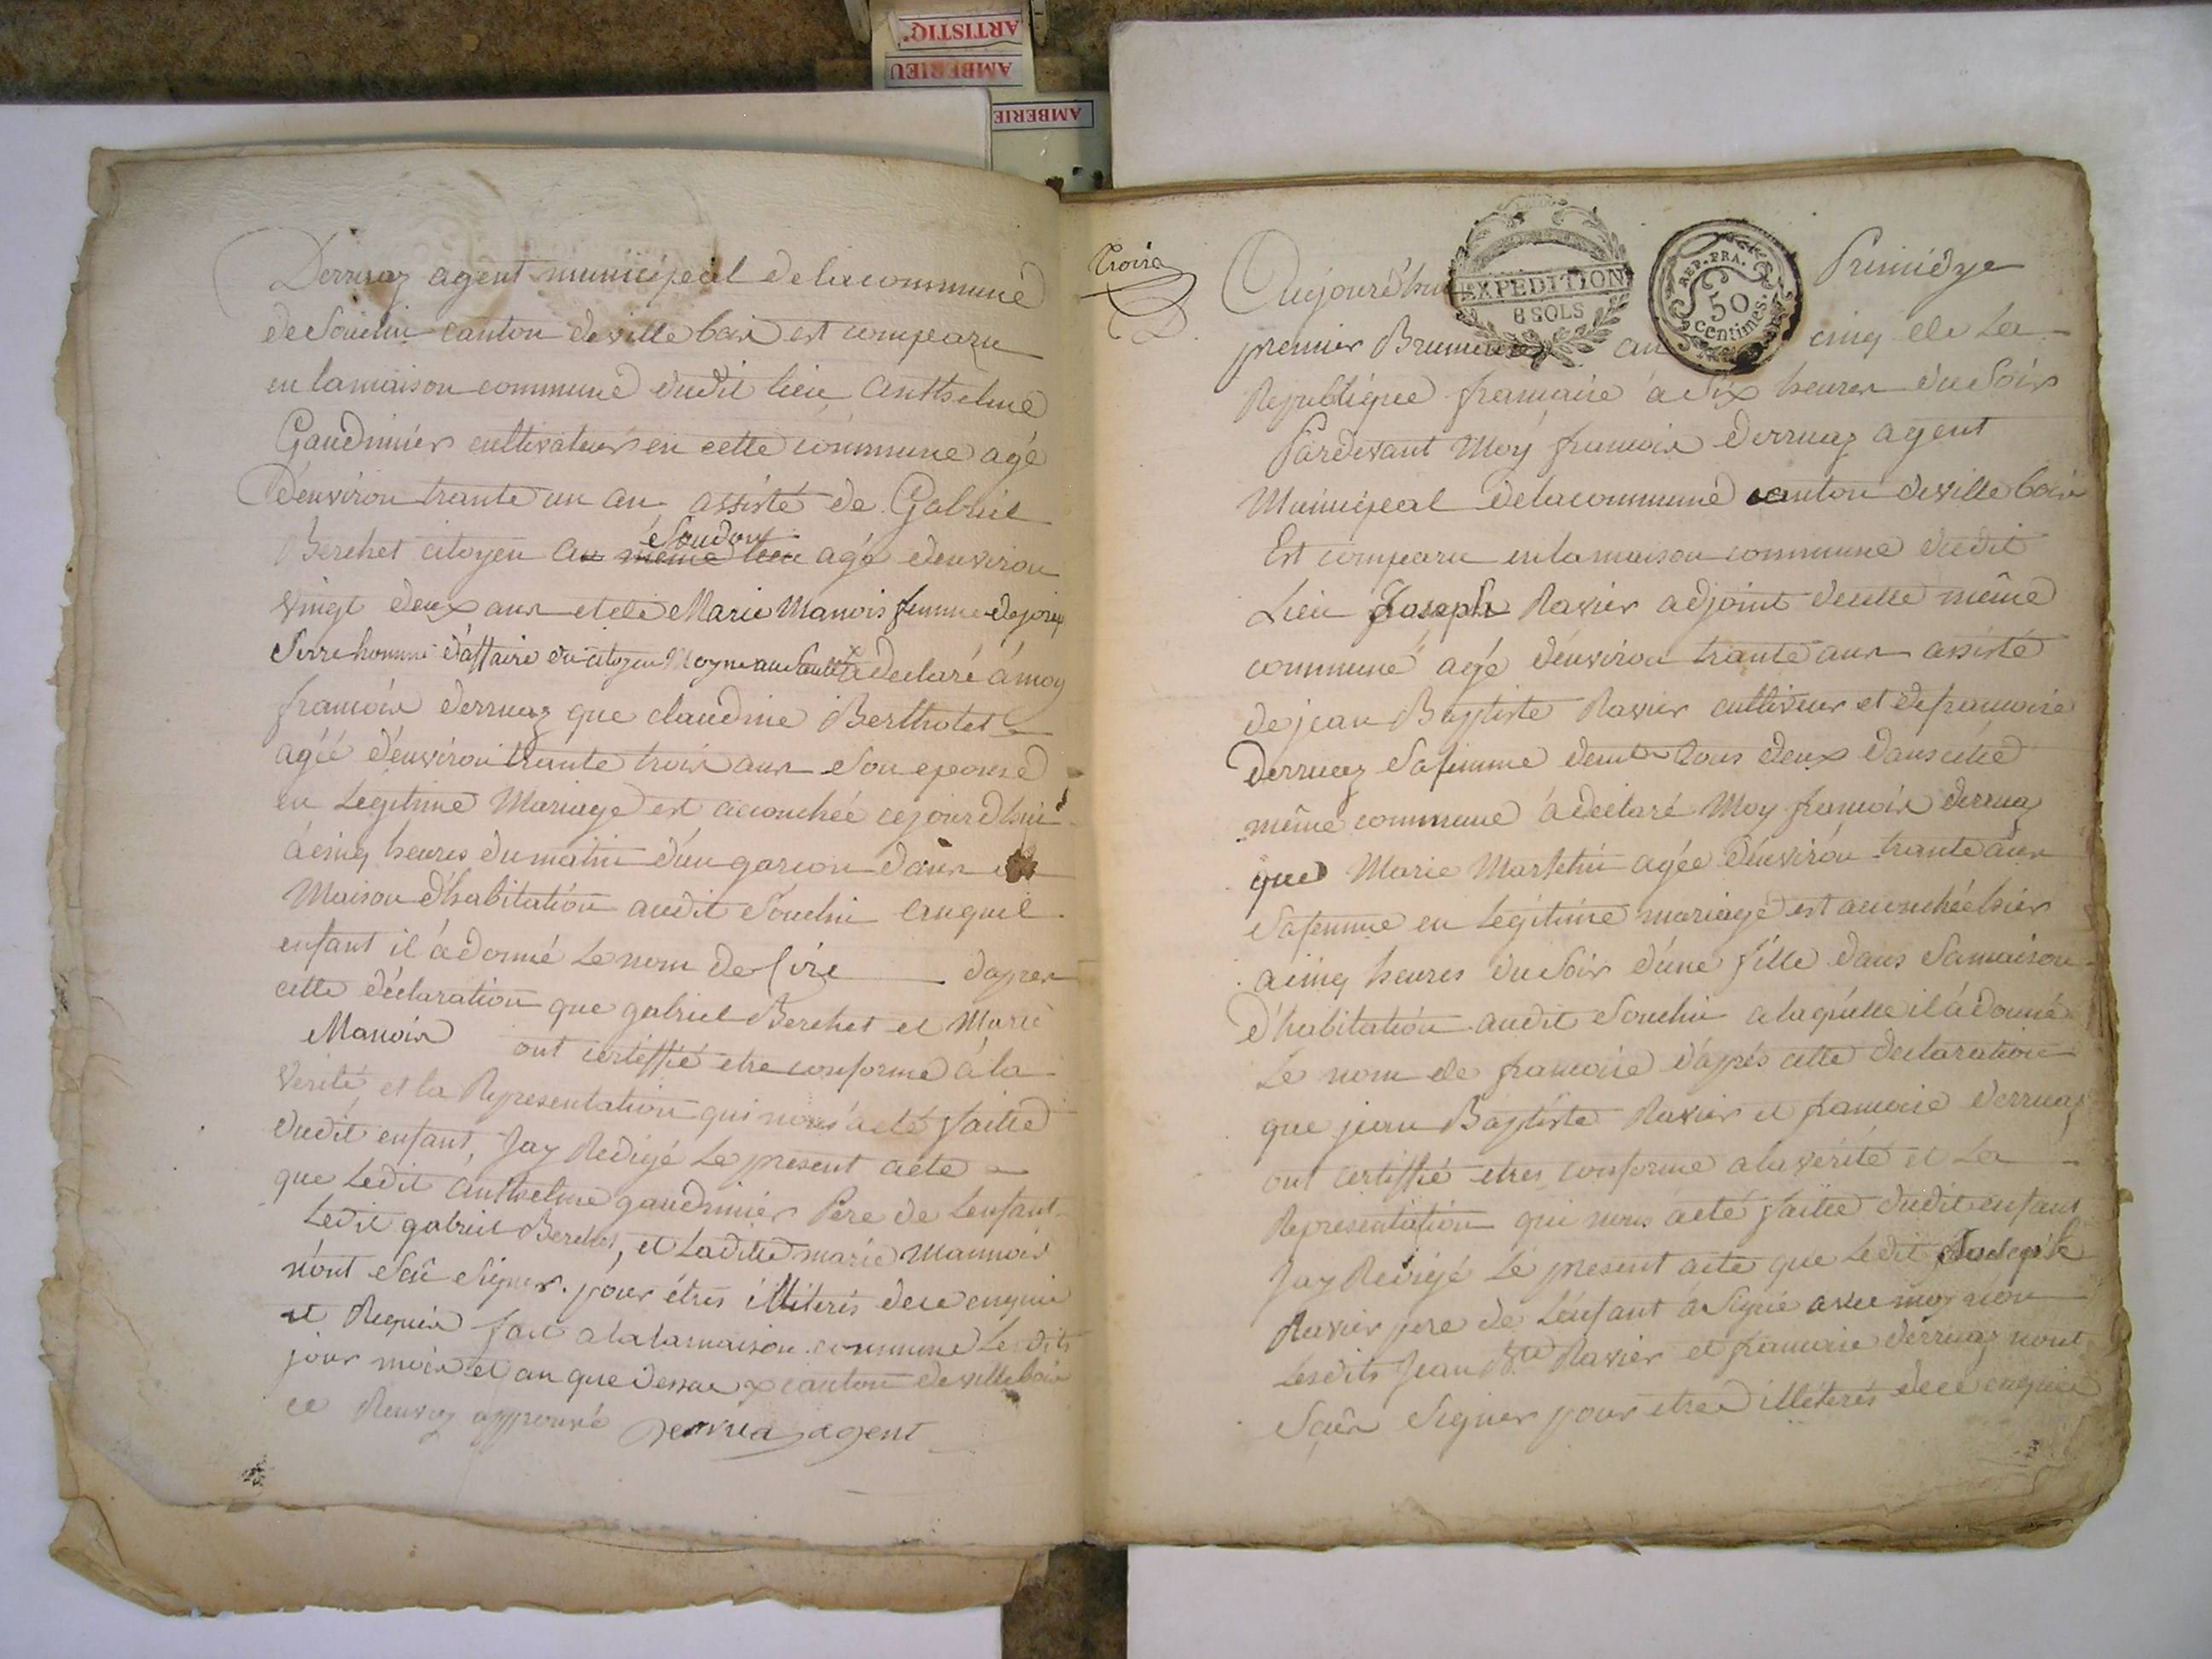 ARTISTIQ'
AMBERIEU
AMBERIE
Derruaz agent municipal de la commune
de Souclin canton de ville bois est comparu
en la maison commune dudit lieu Anthelme
Gaudinier cultivateur en cette commune agé
d'environ trante un an assisté de Gabriel
Soudon
Berchet citoyen au même lieu agé d'environ
vingt deux ans et de Marie Manois femme de joseph
Serre homme d'affaire du citoyen Moyne au a declaré à moy
francois derruaz que claudine Bertholet
agéé d'environ trante trois ans son epouse
en Legitime Mariage est accouchée cejourdhui
à cinq heures du matin d'un garcon dans
Maison d'habitation audit Souclin auquel
enfant il à donné Le nom de Cire d'apres
cette déclaration que gabriel Berchet et Marie
Manois ont certiffié etre conforme à la
verité, et la Representation qui nous à eté faitte
dudit enfant, Jay Redigé Le present acte
que Ledit anthelme gaudinier Pere de Lenfant
Ledit gabriel Berchet, et Laditte marie Mannois
n'ont Scû Signer. pour étres illiterés de ce enquis
et Requis fait a la lamaison commune Lesdits
jour mois et an que dessus x canton de villebois
ce Renvoy approuvé derruaz agent
Troisa
Aujourd'hui Primidye
EXPEDITION
8 SOLS
REP. FRA.
50
centimes.
premier Brumaire an cinq de La
Republique francaise à Six heures du Soir
Pardevant Moy francois derruaz agent
Municipal de la commune canton de ville bois
Est comparu en la maison commune dudit
Lieu Joseph Ravier adjoint de cette même
commune agé d'environ trante ans assisté
de jean Baptiste Ravier cultiveur et de francoise
derruaz Sa femme demt tous deux dans cette
même commune à declaré Moy francois derruaz
que Marie Marselin agée d'environ trante ans
Sa femme en Legitime mariage est accouchée hier
a cinq heures du Soir d'une fille dans Sa maison
d'habitation audit Souclin a laquelle il à donné
Le nom de francoise d'aprés cette declaration
que jean Baptiste Ravier et francoise derruaz
ont certiffié etres conforme a la vérité et La
Representation qui nous à eté faitte dudit enfant
Jay Redigé Le present acte que Ledit Joseph
Ravier pere de L'enfant à Signé avec moy non
Lesdits Jean Bte Ravier et francoise derruaz nont
Scûs Signer pour etre illéterés de ce enquis